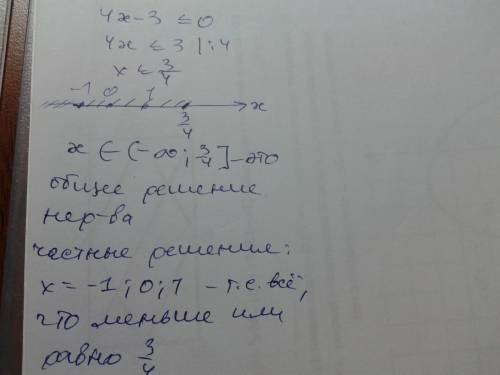 4x-3 ≤ 0
4x ≤ 3 |:4
x ≤ 3/4
-1 0 1 x
3/4
x ∈ (-∞; 3/4] - это
общее решение
нер-ва
частные решения:
x = -1; 0; 1 - т.е. всё,
что меньше или
равно 3/4